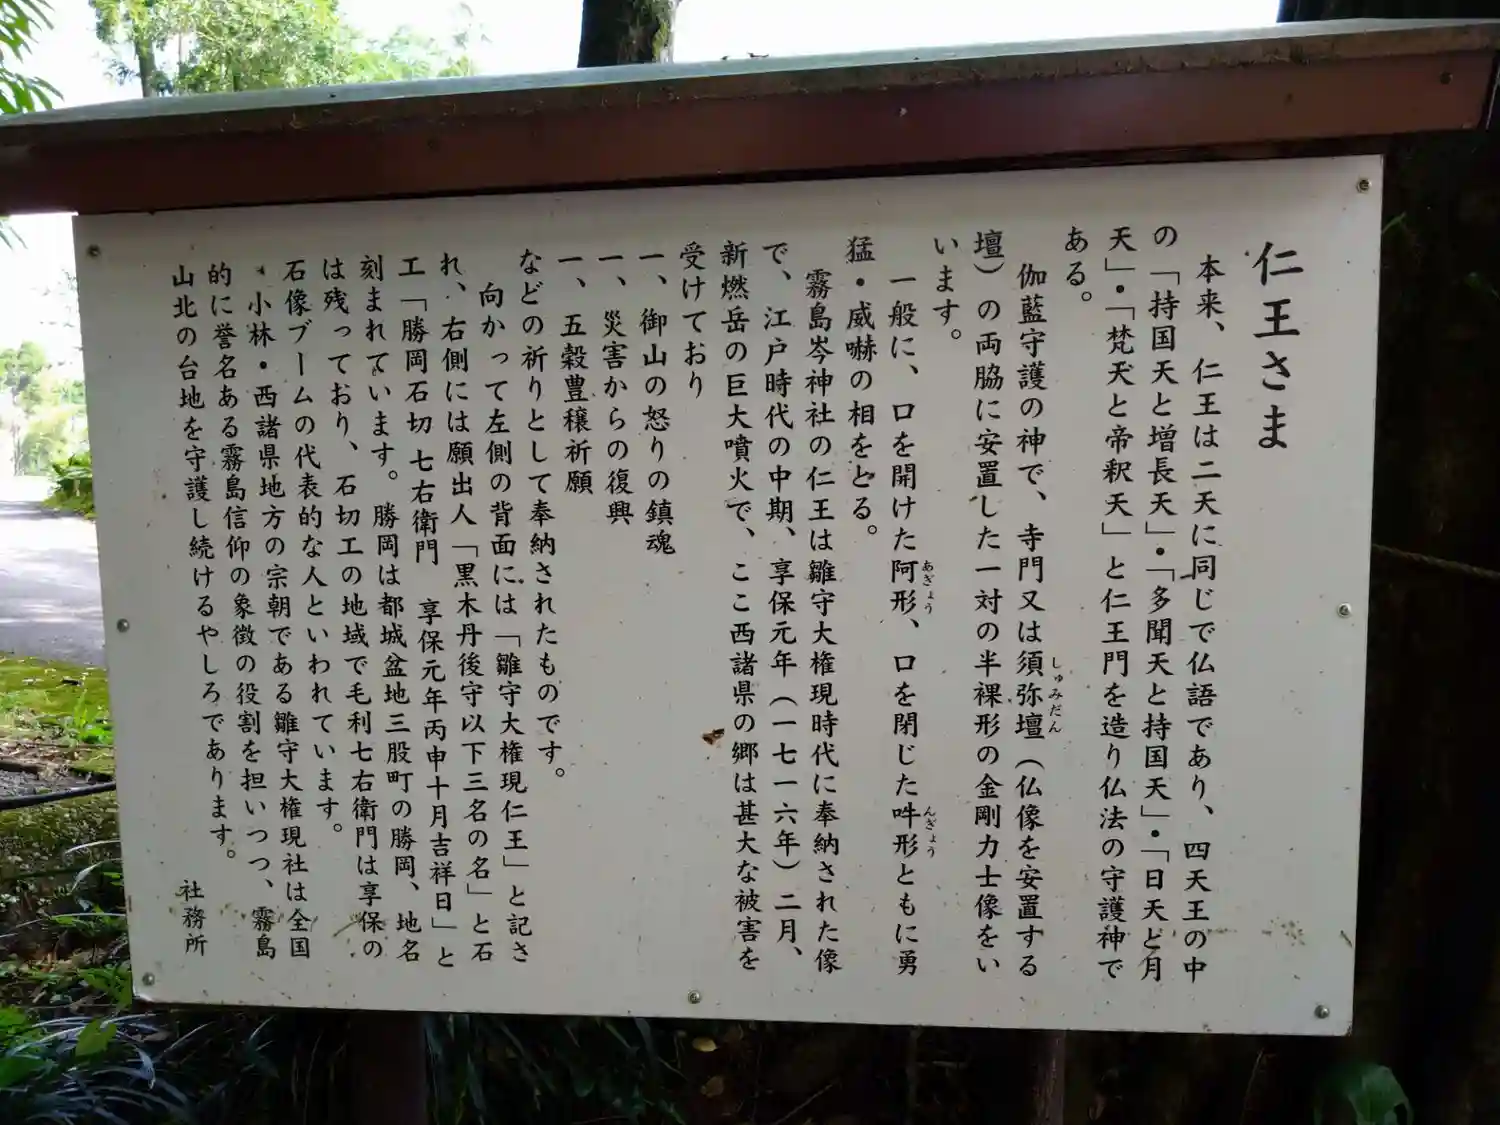 仁王さま
本来、仁王は二天に同じで仏語であり、四天王の中
の「持国天と増長天」・「多聞天と持国天」・「日天と月
天」・「梵天と帝釈天」と仁王門を造り仏法の守護神で
ある。
伽藍守護の神で、寺門又は須弥壇（仏像を安置する
しゅみだん
壇）の両脇に安置した一対の半裸形の金剛力士像をい
います。
一般に、口を開けた阿形、口を閉じた吽形ともに勇
あぎょう
んぎょう
猛・威嚇の相をとる。
霧島岑神社の仁王は雛守大権現時代に奉納された像
で、江戸時代の中期、享保元年（一七一六年）二月、
新燃岳の巨大噴火で、ここ西諸県の郷は甚大な被害を
受けており
一、御山の怒りの鎮魂
一、災害からの復興
一、五穀豊穣祈願
などの祈りとして奉納されたものです。
向かって左側の背面には「雛守大権現仁王」と記さ
れ、右側には願出人「黒木丹後守以下三名の名」と石
工「勝岡石切 七右衛門 享保元年丙申十月吉祥日」と
刻まれています。勝岡は都城盆地三股町の勝岡、地名
は残っており、石切工の地域で毛利七右衛門は享保の
石像ブームの代表的な人といわれています。
小林・西諸県地方の宗朝である雛守大権現社は全国
的に誉名ある霧島信仰の象徴の役割を担いつつ、霧島
山北の台地を守護し続けるやしろであります。
社務所